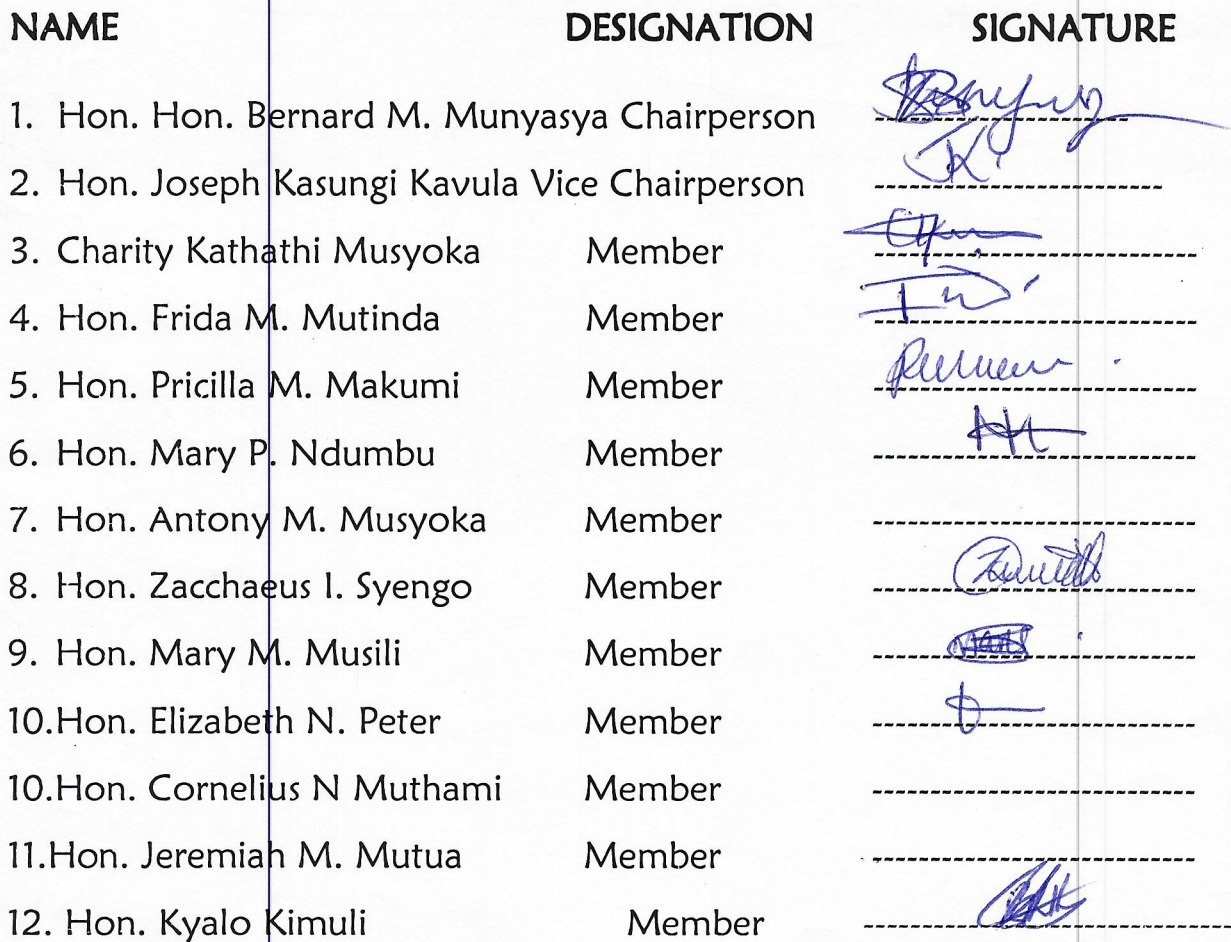 NAME DESIGNATION SIGNATURE
1. Hon. Hon. Bernard M. Munyasya Chairperson
2. Hon. Joseph Kasungi Kavula Vice Chairperson
3. Charity Kathathi Musyoka Member
4. Hon. Frida M. Mutinda Member
5. Hon. Pricilla M. Makumi Member
6. Hon. Mary P. Ndumbu Member
7. Hon. Antony M. Musyoka Member
8. Hon. Zacchaeus I. Syengo Member
9. Hon. Mary M. Musili Member
10.Hon. Elizabeth N. Peter Member
10.Hon. Cornelius N Muthami Member
11.Hon. Jeremiah M. Mutua Member
12. Hon. Kyalo Kimuli Member